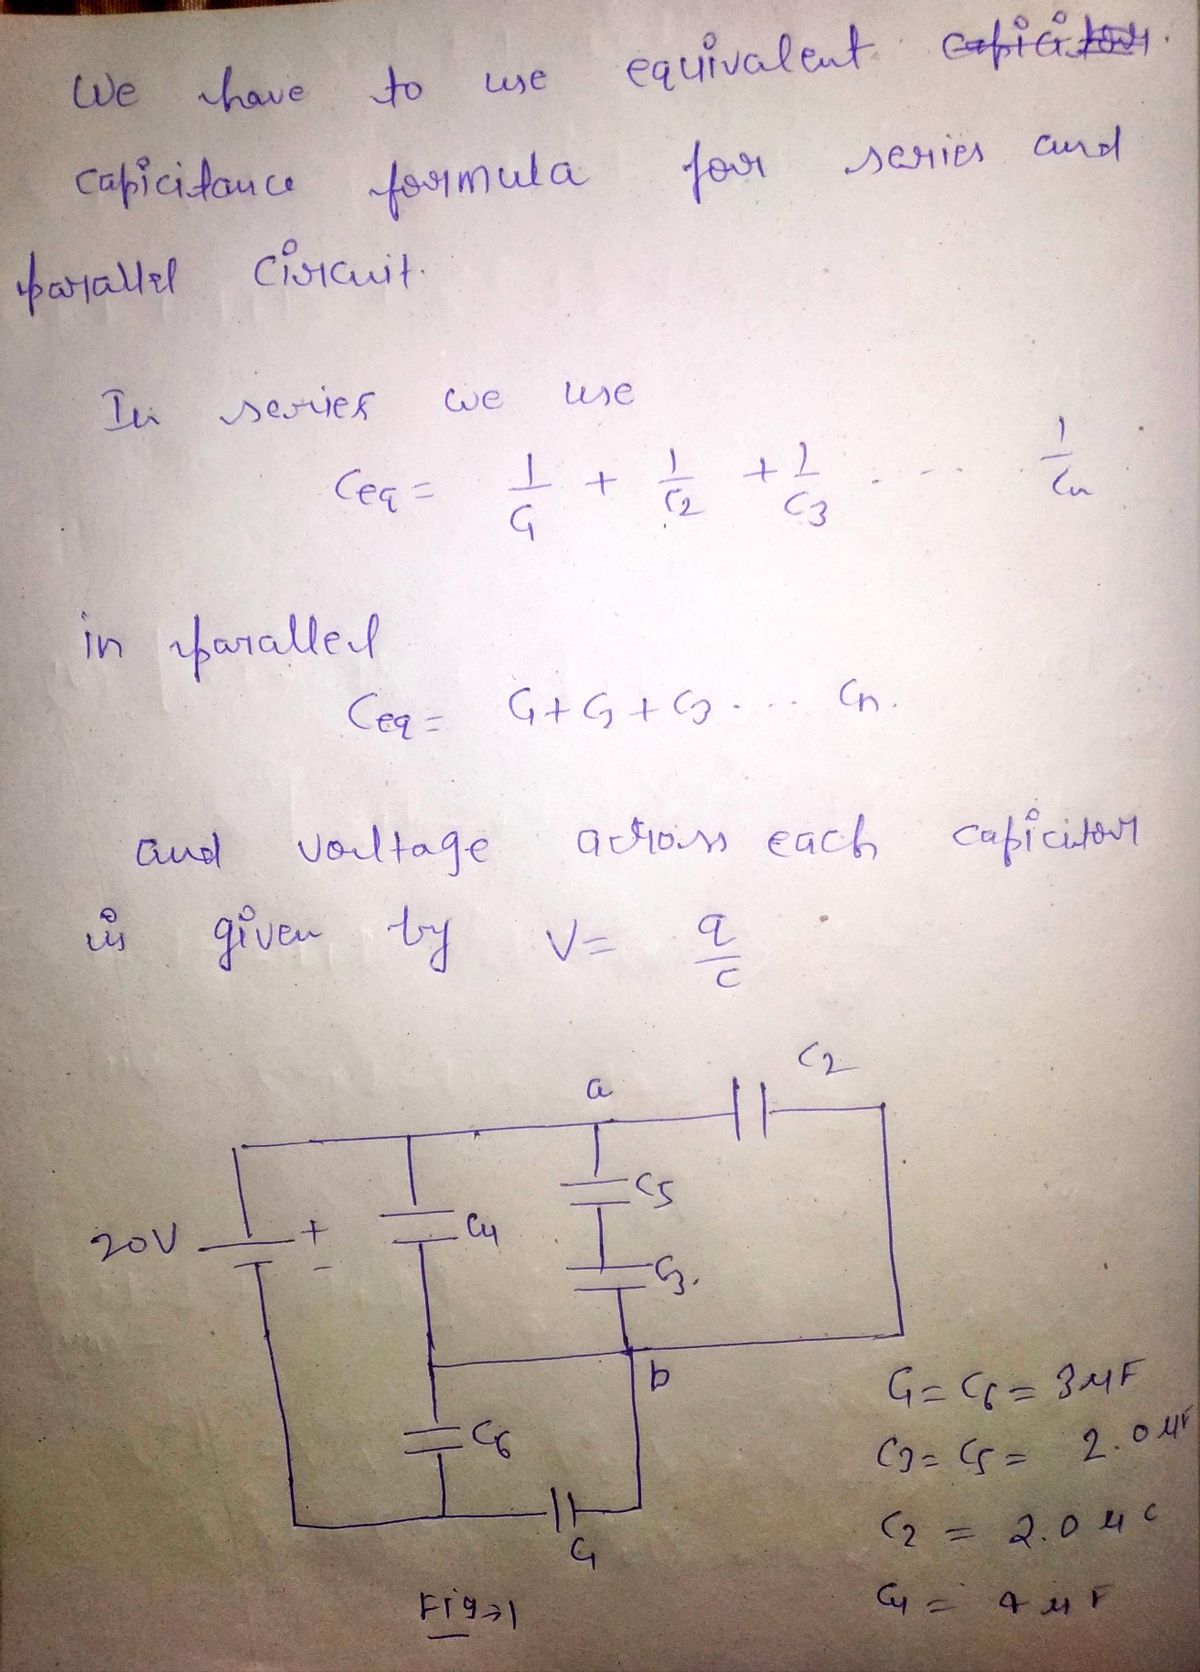 We have to use equivalent
capicitance formula for series and
parallel circuit.
In series we use
Ceq = 1/C1 + 1/C2 + 1/C3 . -- . 1/Cn
in parallel
Ceq = C1 + C2 + C3 - . . . Cn.
and voltage across each capicitor
is given by V = q/c
C2
a
C5
20V + -
C4
C3.
b
C6
C1
C1 = C6 = 3 μF
C3 = C5 = 2.0 μF
C2 = 2.0 μC
C4 = 4 μF
Fig→1